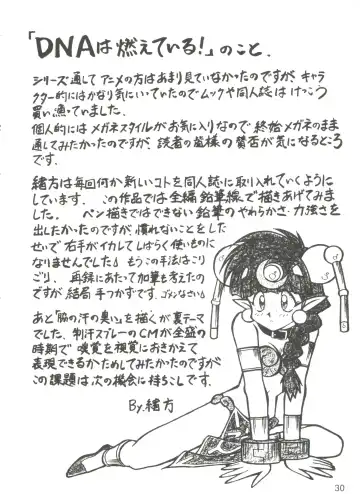 「DNAは燃えている!」のこと.
シリーズ通してアニメの方はあまり見ていなかったのですが、キャラ
クター的にはかなり気にいっていたのでムックや同人誌はけっこう
買い漁っていました。
個人的にはメガネスタイルがお気に入りなので終始メガネのまま
通してみたかったのですが、読者の皆様の賛否が気になるところ
です。
緒方は毎回何か新しいコトを同人誌に取り入れていくように
しています。この作品では全編鉛筆線で描きあげてみま
した。 ペン描きではできない鉛筆のやわらかさ・力強さを
出したかったのですが、慣れないことをした
せいで右手がイカレてしばらく使いものに
なりませんでした」 もうこの手法はこり
ごり。 再録にあたって加筆も考えたの
ですが、結局 手つかずです. ゴメンなさい」
あと「脇の汗の臭い」を描くが裏テーマ
でした. 制汗スプレーのCMが全盛の
時期で 嗅覚を視覚におきかえて
表現できるかためしてみたかったのですが
この課題は次の機会に持ちこしです.
By.緒方
30